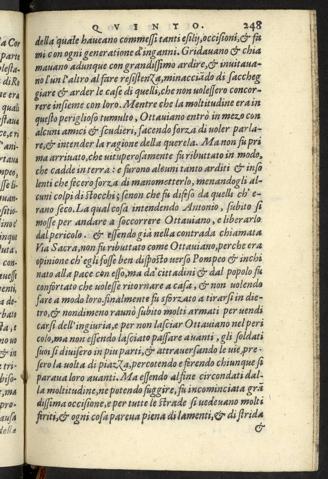 QVINTO. 248
della quale haueano commessi tanti esilij, occisioni, & fu
mi con ogni generatione d'inganni. Gridauano & chia
mauano adunque con grandissimo ardire, & inuitaua-
no l'un l'altro al fare resistenza, minacciādo di saccheg
giare & arder le case di quelli, che non uolessero concor-
rere insieme con loro. Mentre che la moltitudine era in
questo periglioso tumulto, Ottauiano entrò in mezo con
alcuni amici & scudieri, facendo forza di uoler parla-
re, & intender la ragione della querela. Ma non fu pri
ma arriuato, che uituperosamente fu ributtato in modo,
che cadde in terra: e furono alcuni tanto arditi & inso
lenti che fecero forza di manometterlo, menandogli al-
cuni colpi di stocchi; senon che fu difeso da quelli ch'e-
rano seco. La qual cosa intendendo Antonio, subito si
mosse per andare a soccorrere Ottauiano, e liberarlo
dal pericolo. & essendo già nella contrada chiamata
Via Sacra, non fu ributtato come Ottauiano, perche era
opinione ch'egli fosse ben disposto uerso Pompeo & inchi
nato alla pace con esso, ma da' cittadini & dal popolo fu
confortato che uolesse ritornare a casa, & non uolendo
fare a modo loro, finalmente fu sforzato a tirarsi in die-
tro, & nondimeno raunò subito molti armati per uendi
carsi dell'ingiuria, e per non lasciar Ottauiano nel peri
colo, ma non essendo lasciato passare auanti, gli soldati
suoi si diuisero in piu parti, & attrauersando le uie, pre-
sero la uolta di piazza, percotendo e firendo chiunque si
paraua loro auanti. Ma essendo alfine circondati dal-
la moltitudine, ne potendo fuggire, fu incominciata grā
dissima occisione, e per tutte le strade si uedeuano molti
firiti, & ogni cosa pareua piena di lamenti, & di strida
&